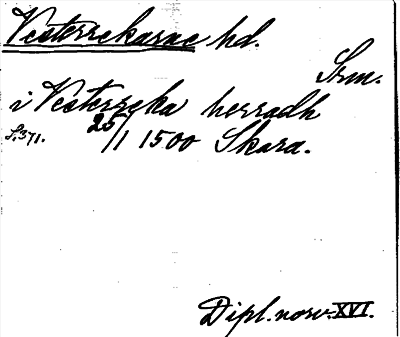 Vesterrekarne hd.
Srm.
i Vesterreka herradh
S.371. 25/1 1500 Skara.
Dipl. norv. XVI.